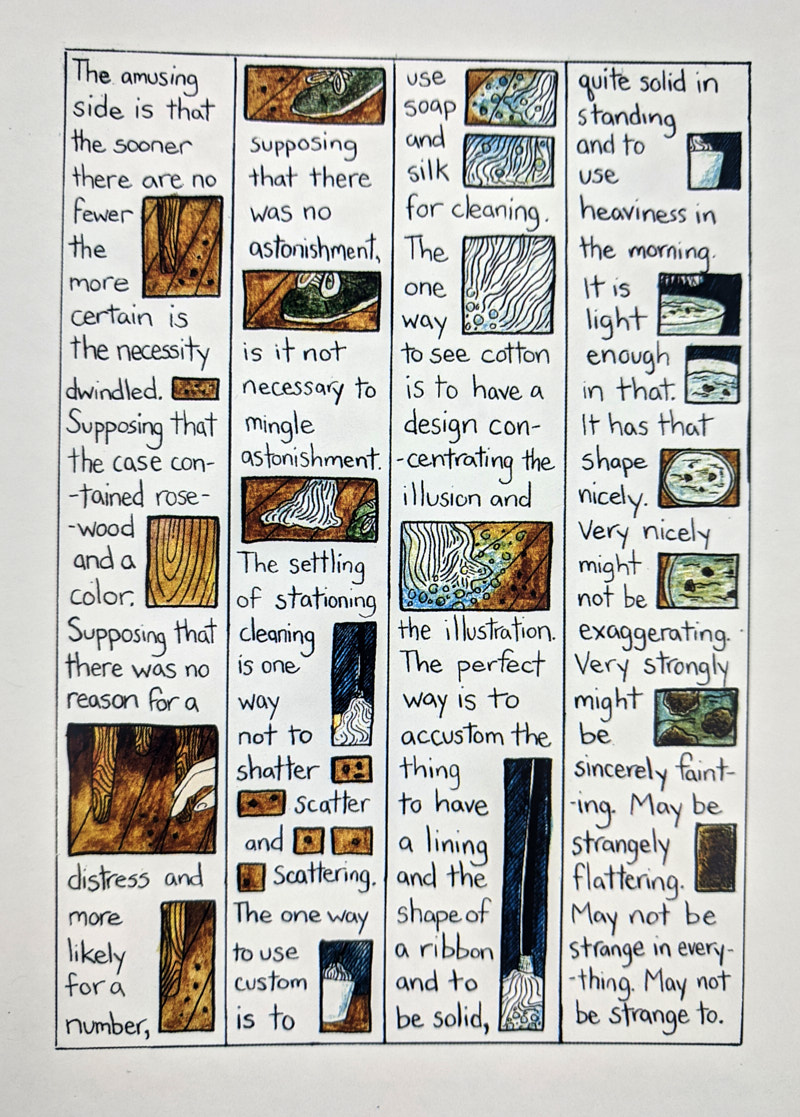 The amusing
side is that
the sooner
there are no
fewer
the
more
certain is
the necessity
dwindled.
Supposing that
the case con-
-tained rose-
-wood
and a
color.
Supposing that
there was no
reason for a
distress and
more
likely
for a
number,
supposing
that there
was no
astonishment,
is it not
necessary to
mingle
astonishment.
The settling
of stationing
cleaning
is one
way
not to
shatter
scatter
and
scattering.
The one way
to use
custom
is to
use
soap
and
silk
for cleaning.
The
one
way
to see cotton
is to have a
design con-
-centrating the
illusion and
the illustration.
The perfect
way is to
accustom the
thing
to have
a lining
and the
shape of
a ribbon
and to
be solid,
quite solid in
standing
and to
use
heaviness in
the morning.
It is
light
enough
in that.
It has that
shape
nicely.
Very nicely
might
not be
exaggerating.
Very strongly
might
be
sincerely faint-
-ing. May be
strangely
flattering.
May not be
strange in every-
-thing. May not
be strange to.